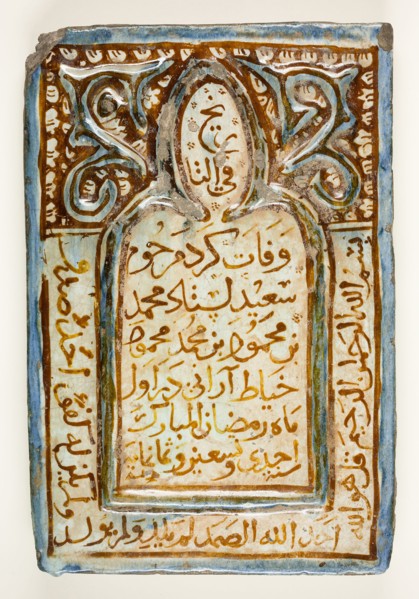 في التاريخ
وفات کرد مرحوم
سعید محمد
بن محمود بن محمد محمود
خیاط آرانی در اول
ماه رمضان المبارك
سنة احدی و تسعین و ثمانمایة
بسم الله الرحمن الرحیم قل هو الله
احد الله الصمد لم یلد ولم یولد
ولم یکن له کفوا احد